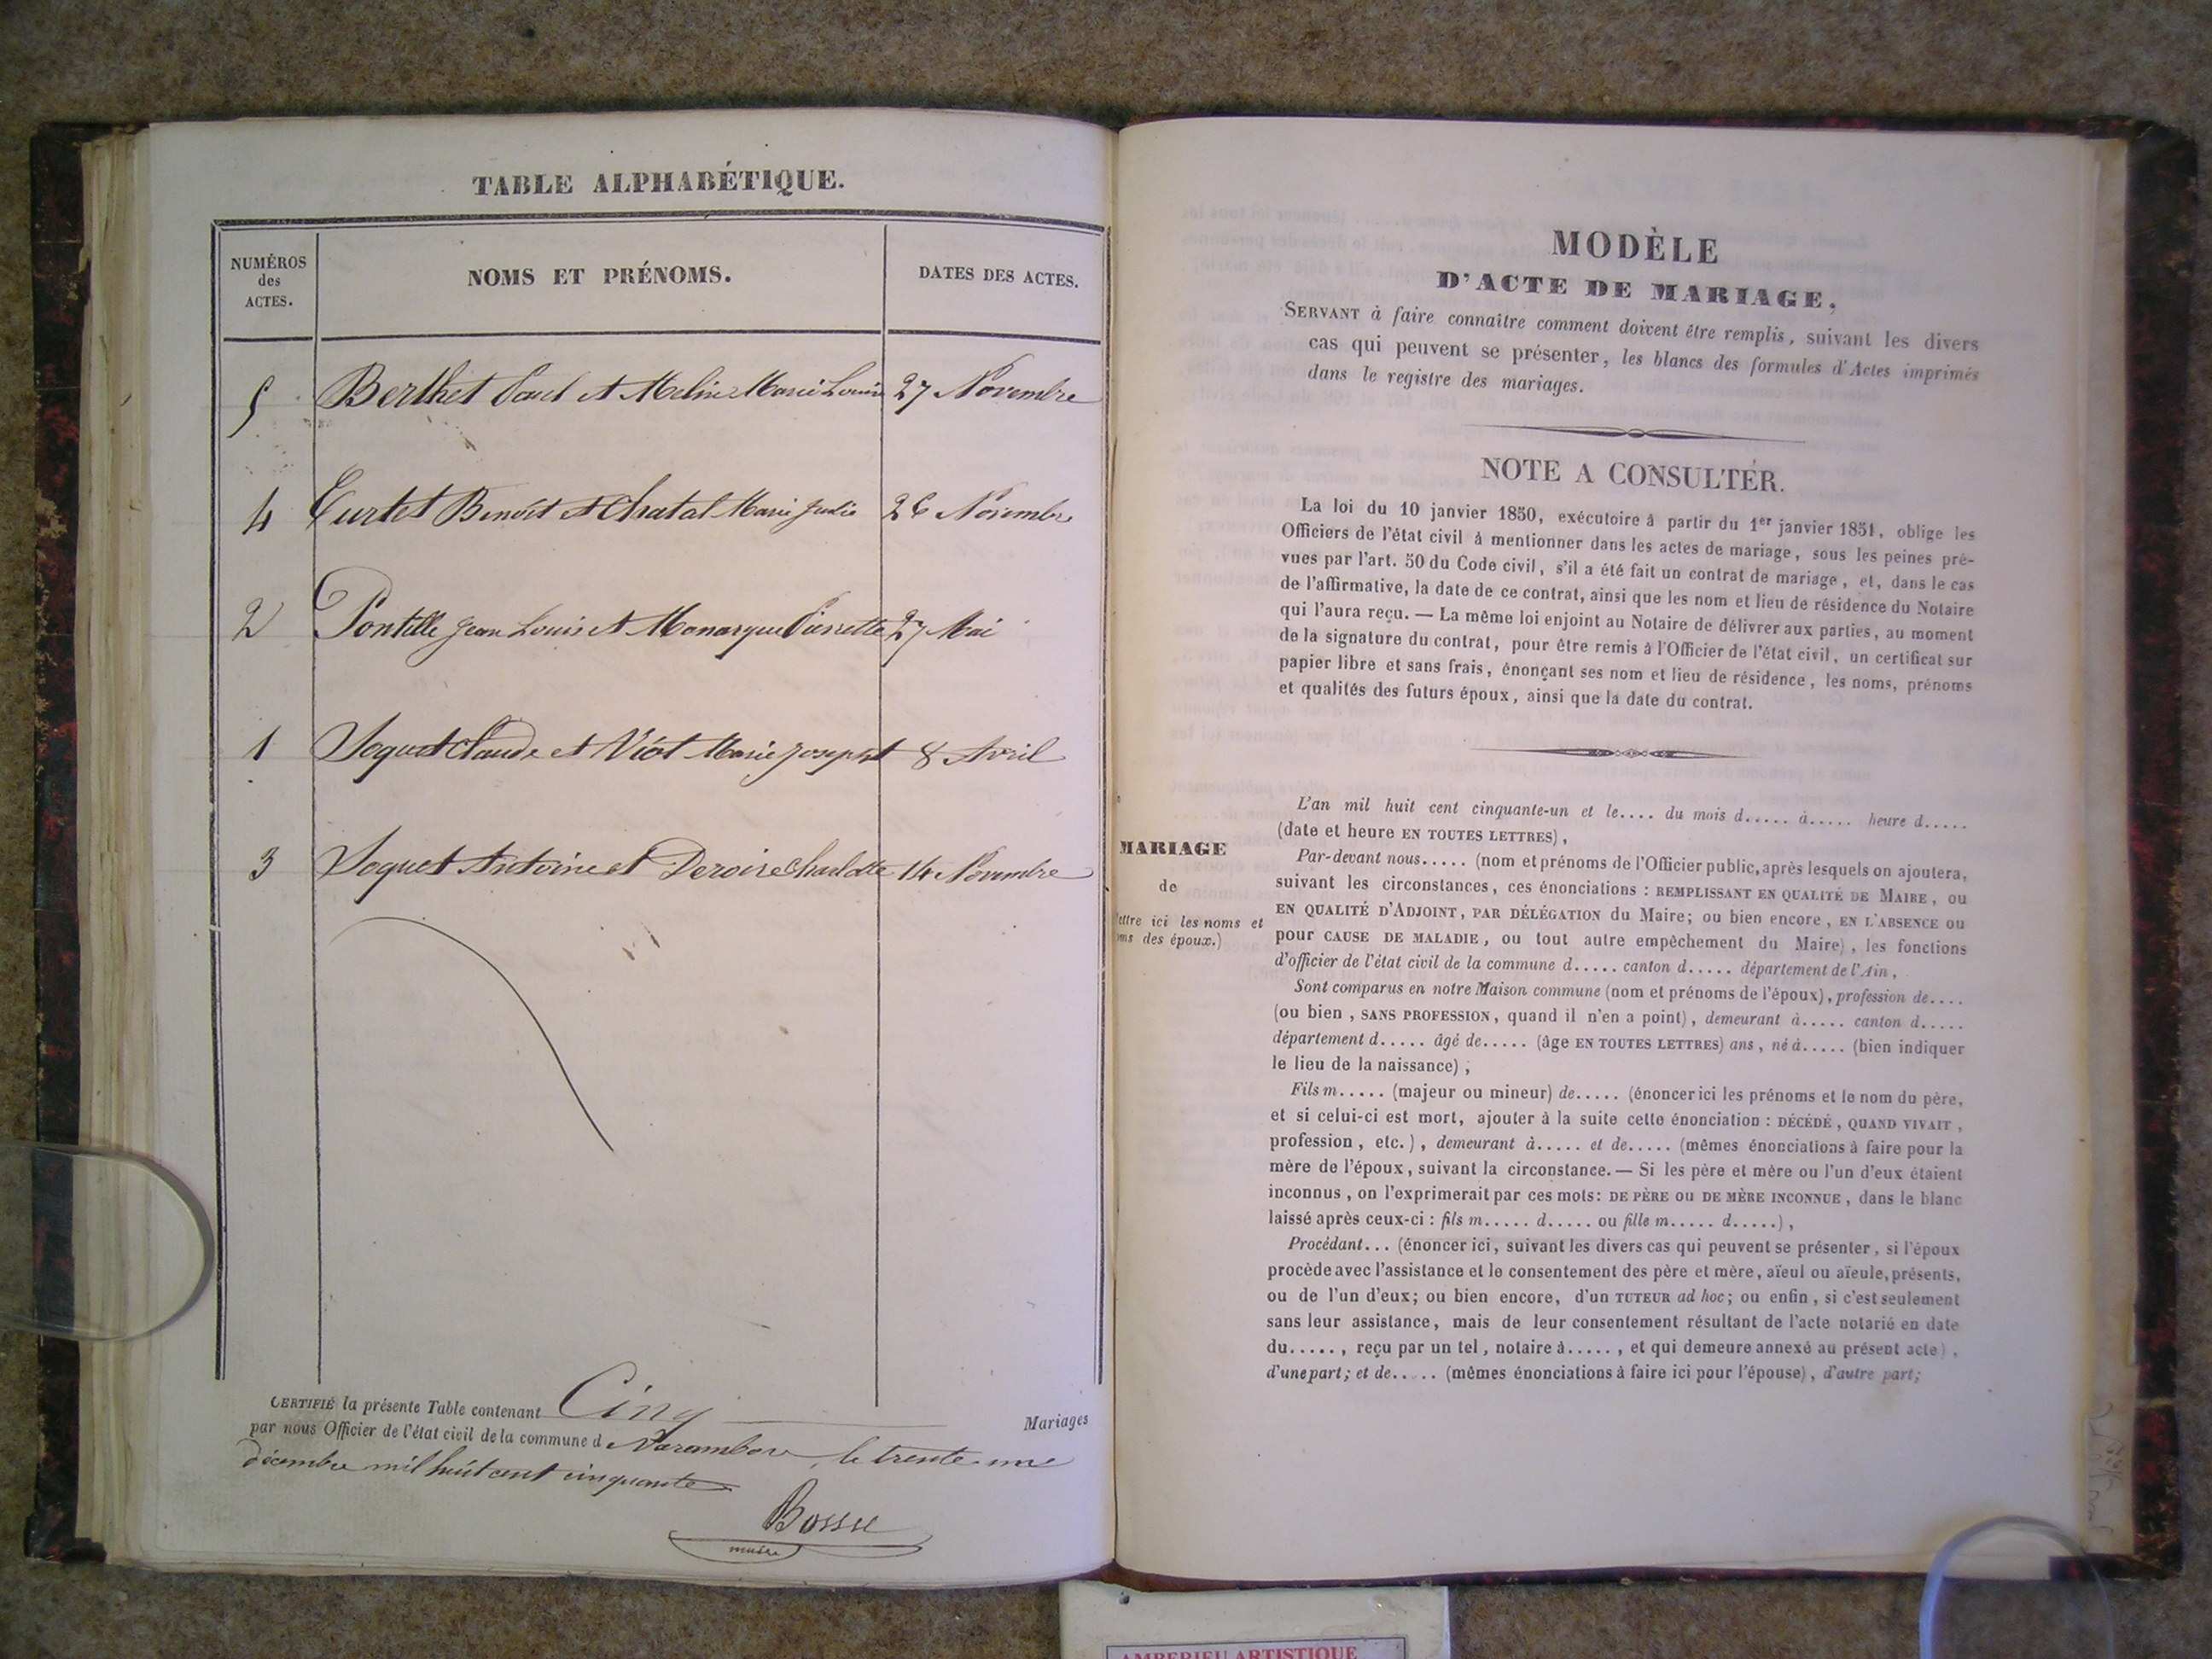 TABLE ALPHABÉTIQUE.
NUMÉROS
des
ACTES.
NOMS ET PRÉNOMS.
DATES DES ACTES.
5 Berthet Paul et Melin Marie Louise 27 Novembre
4 Curtet Benoît et Chatal Marie Julie 26 Novembre
2 Pontille Jean Louis et Monarque Pierrette 27 Mai
1 Soquet Claude et Viot Marie Josepht 8 Avril
3 Soquet Antoine et Deroire Charlotte 14 Novembre
CERTIFIÉ la présente Table contenant Cinq Mariages
par nous Officier de l'état civil de la commune d Varambon, le trente-un
décembre mil huit cent cinquante
Bossu
maire
MODÈLE
D'ACTE DE MARIAGE,
SERVANT à faire connaître comment doivent être remplis, suivant les divers
cas qui peuvent se présenter, les blancs des formules d'Actes imprimés
dans le registre des mariages.
NOTE A CONSULTER.
La loi du 10 janvier 1850, exécutoire à partir du 1er janvier 1851, oblige les
Officiers de l'état civil à mentionner dans les actes de mariage, sous les peines pré-
vues par l'art. 50 du Code civil, s'il a été fait un contrat de mariage, et, dans le cas
de l'affirmative, la date de ce contrat, ainsi que les nom et lieu de résidence du Notaire
qui l'aura reçu. — La même loi enjoint au Notaire de délivrer aux parties, au moment
de la signature du contrat, pour être remis à l'Officier de l'état civil, un certificat sur
papier libre et sans frais, énonçant ses nom et lieu de résidence, les noms, prénoms
et qualités des futurs époux, ainsi que la date du contrat.
MARIAGE
de
ettre ici les noms et
oms des époux.)
L'an mil huit cent cinquante-un et le.... du mois d..... à..... heure d.....
(date et heure EN TOUTES LETTRES),
Par-devant nous..... (nom et prénoms de l'Officier public, après lesquels on ajoutera,
suivant les circonstances, ces énonciations : REMPLISSANT EN QUALITÉ DE MAIRE, ou
EN QUALITÉ D'ADJOINT, PAR DÉLÉGATION du Maire; ou bien encore, EN L'ABSENCE ou
pour CAUSE DE MALADIE, ou tout autre empêchement du Maire), les fonctions
d'officier de l'état civil de la commune d..... canton d..... département de l'Ain,
Sont comparus en notre Maison commune (nom et prénoms de l'époux), profession de....
(ou bien, SANS PROFESSION, quand il n'en a point), demeurant à..... canton d.....
département d..... âgé de..... (âge EN TOUTES LETTRES) ans, né à..... (bien indiquer
le lieu de la naissance);
Fils m..... (majeur ou mineur) de..... (énoncer ici les prénoms et le nom du père,
et si celui-ci est mort, ajouter à la suite cette énonciation : DÉCÉDÉ, QUAND VIVAIT,
profession, etc.), demeurant à..... et de..... (mêmes énonciations à faire pour la
mère de l'époux, suivant la circonstance. — Si les père et mère ou l'un d'eux étaient
inconnus, on l'exprimerait par ces mots: DE PÈRE OU DE MÈRE INCONNUE, dans le blanc
laissé après ceux-ci : fils m..... d..... ou fille m..... d.....),
Procédant... (énoncer ici, suivant les divers cas qui peuvent se présenter, si l'époux
procède avec l'assistance et le consentement des père et mère, aïeul ou aïeule, présents,
ou de l'un d'eux; ou bien encore, d'un TUTEUR ad hoc; ou enfin, si c'est seulement
sans leur assistance, mais de leur consentement résultant de l'acte notarié en date
du....., reçu par un tel, notaire à....., et qui demeure annexé au présent acte),
d'une part; et de..... (mêmes énonciations à faire ici pour l'épouse), d'autre part;
AMBERIEU ARTISTIQUE